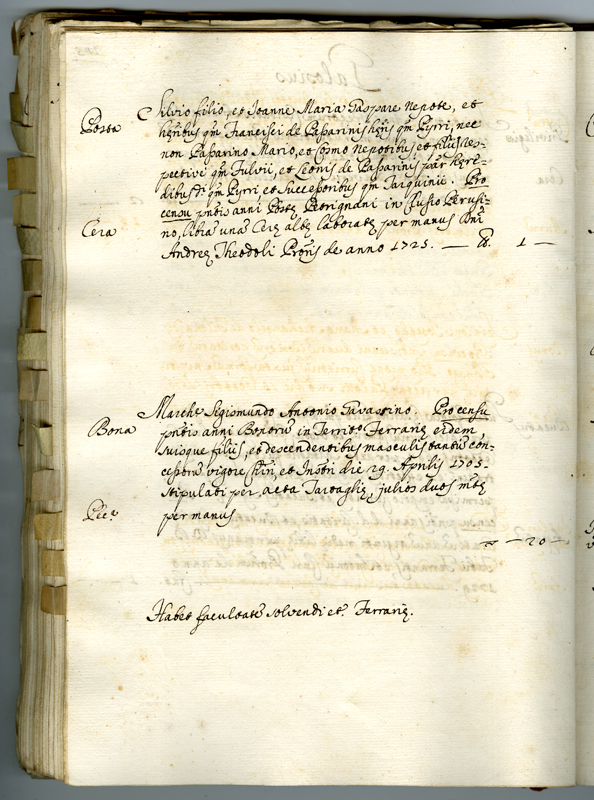 Silvio filio, et Ioanne Maria Gaspare Nepote, et
Posta hęribus qm̃ Francisci de Passarinis hęris qm̃ Pyrri, nec
non Passarino Mario, et Cosmo Nepotibus et filijs res-
pectivi qm̃ Fulvii, et Leonis de Passarinis par hęre-
dibus qm̃ Pyrri et Successoribus qm̃ Tarquinii. Pro
censu pñtis anni Postę Petrignani in Lusio Perusi-
Cera no, libra una Cerę albę laboratę per manus Dñi
Andreę Theodoli Proris de anno 1725. — lb. 1 —
Marchę Sigismundo Antonio Gavassino. Pro censu
Bona pñtis anni Bonorũ in Territo. Ferrarię eidem
suisque filiis, et descendentibus masculis tantũ con-
cessorũ vigore et Instri die 29. Aprilis 1705.
stipulati per acta Tartaglię, julios duos mtę
Pec.ę per manus
— 20 —
Habet facultatẽ solvendi et. Ferrarię.